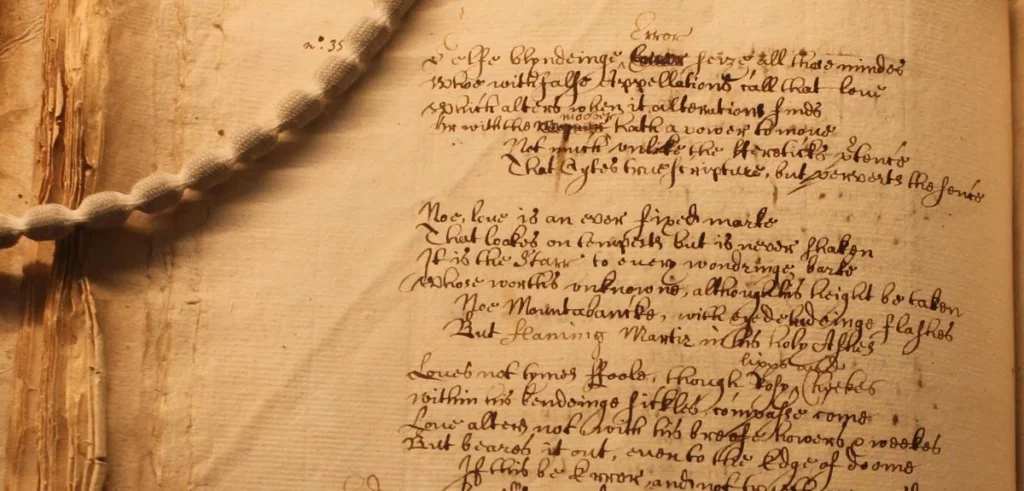 Error
n.º 35
Selfe blyndeinge seize all those mindes
Who with false Appellations call that love
Which alters when it alterations finds
mover
Or with the hath a power to move
Not much unlike the Heretickes ptence
That Cytes true scripture, but perverts the sence
Noe, love is an ever fixed marke
That lookes on tempests but is never shaken
It is the Starr to every wandringe barke
Whose worths unknowne, although his height be taken
Noe Mountabancke, with eye deludeinge flashes
But flaming Martir in his holy Ashes
lipps and
Loves not tymes Foole, though Rosy Cheekes
Within his bendeinge sickles, compasse come
Love alters not with his breefe howers & weekes
But beares it out, even to the Edge of doome
If this be Error, and not